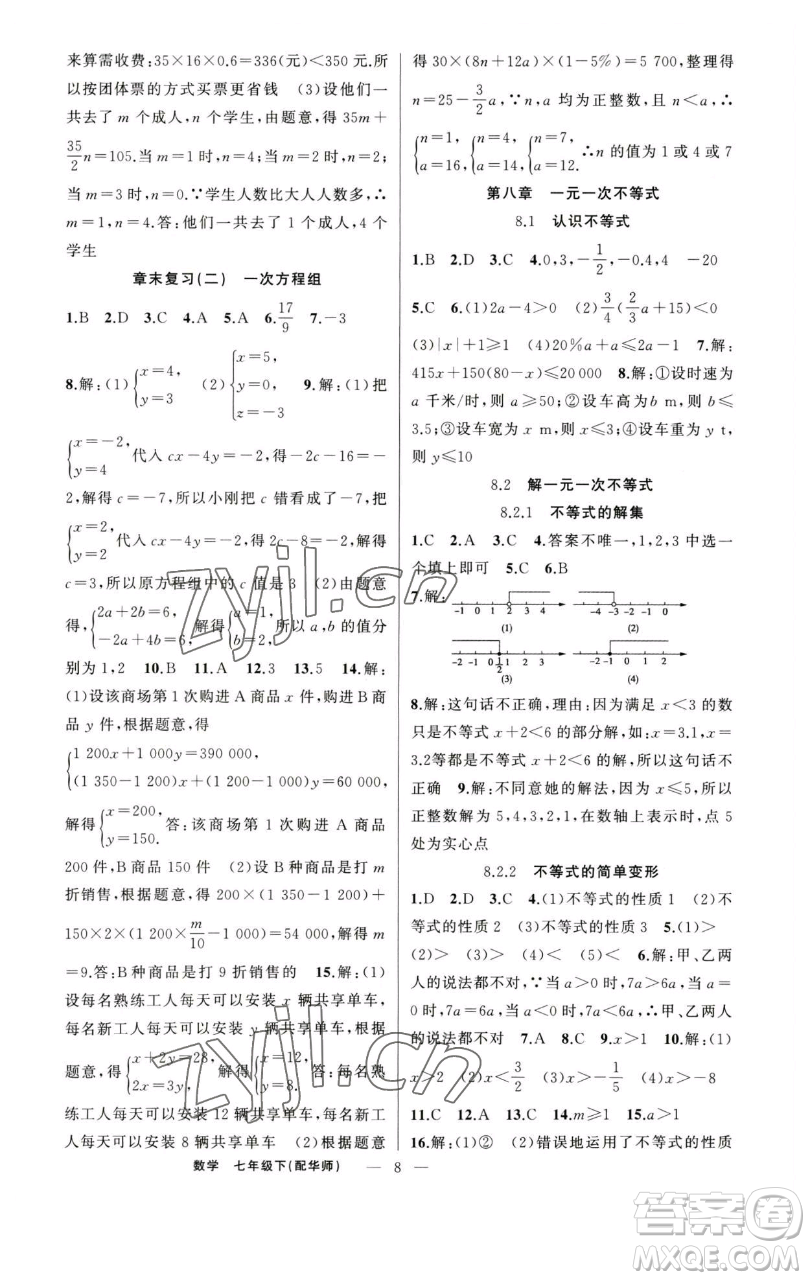 来算需收费:35×16×0.6=336(元)<350 元.所
以按团体票的方式买票更省钱 (3)设他们一
共去了 m 个成人,n 个学生,由题意,得 35m+
35/2 n=105.当 m=1 时,n=4;当 m=2 时,n=2;
当 m=3 时,n=0.∵学生人数比大人人数多,∴
m=1,n=4.答:他们一共去了 1 个成人,4 个
学生
章末复习(二) 一次方程组
1.B 2.D 3.C 4.A 5.A 6.17/9 7.-3
8.解:(1){x=4, y=3 (2){x=5, y=0, z=-3 9.解:(1)把
{x=-2, y=4 代入 cx-4y=-2,得-2c-16=-
2,解得 c=-7,所以小刚把 c 错看成了-7,把
{x=2, y=2 代入 cx-4y=-2,得 2c-8=-2,解得
c=3,所以原方程组中的 c 值是 3 (2)由题意
得,{2a+2b=6, -2a+4b=6, 解得{a=1, b=2, 所以 a,b 的值分
别为 1,2 10.B 11.A 12.3 13.5 14.解:
(1)设该商场第 1 次购进 A 商品 x 件,购进 B 商
品 y 件,根据题意,得
{1 200x+1 000y=390 000, (1 350-1 200)x+(1 200-1 000)y=60 000,
解得{x=200, y=150. 答:该商场第 1 次购进 A 商品
200 件,B 商品 150 件 (2)设 B 商品是打 m
折销售,根据题意,得 200×(1 350-1 200)+
150×2×(1 200×m/10-1 000)=54 000,解得 m
=9.答:B 种商品是打 9 折销售的 15.解:(1)
设每名熟练工人每天可以安装 x 辆共享单车,
每名新工人每天可以安装 y 辆共享单车,根据
题意,得{x+2y=28, 2x=3y, 解得{x=12, y=8. 答:每名熟
练工人每天可以安装 12 辆共享单车,每名新工
人每天可以安装 8 辆共享单车 (2)根据题意
得 30×(8n+12a)×(1-5%)=5 700,整理得
n=25-3/2 a,∵n,a 均为正整数,且 n<a,∴
{n=1, a=16, {n=4, a=14, {n=7, a=12. ∴n 的值为 1 或 4 或 7
第八章 一元一次不等式
8.1 认识不等式
1.B 2.D 3.C 4.0,-1/2,-0.4,-4 -20
5.C 6.(1)2a-4>0 (2)3/4(2/3 a+15)<0
(3)|x|+1≥1 (4)20%a+a≤2a-1 7.解:
415x+150(80-x)≤20 000 8.解:①设时速为
a 千米/时,则 a≥50;②设车高为 b m,则 b≤
3.5;③设车宽为 x m,则 x≤3;④设车重为 y t,
则 y≤10
8.2 解一元一次不等式
8.2.1 不等式的解集
1.C 2.A 3.C 4.答案不唯一,1,2,3 中选一
个填上即可 5.C 6.B
7.解:
-1 0 1 2 3 4 -4 -3 -2 -1 0 1
(1) (2)
-2 -1 0 1/2 1 2 3 -2 -1 0 1 2 3
(3) (4)
8.解:这句话不正确,理由:因为满足 x<3 的数
只是不等式 x+2<6 的部分解,如:x=3.1,x=
3.2等都是不等式 x+2<6 的解,所以这句话不
正确 9.解:不同意她的解法,因为 x≤5,所以
正整数解为 5,4,3,2,1,在数轴上表示时,点 5
处为实心点
8.2.2 不等式的简单变形
1.D 2.D 3.C 4.(1)不等式的性质 1 (2)不
等式的性质 2 (3)不等式的性质 3 5.(1)>
(2)> (3)> (4)< (5)< 6.解:甲、乙两
人的说法都不对,∵当 a>0 时,7a>6a,当 a=
0 时,7a=6a,当 a<0 时,7a<6a,∴甲、乙两人
的说法都不对 7.A 8.C 9.x>1 10.解:(1)
x>2 (2)x<3/2 (3)x>-1/5 (4)x>-8
11.C 12.C 13.A 14.m≥1 15.a>1
16.解:(1)② (2)错误地运用了不等式的性质
数学 七年级下(配华师) — 8 —
zyjl.cn
zyjl.cn
答案圈
MXQE.COM